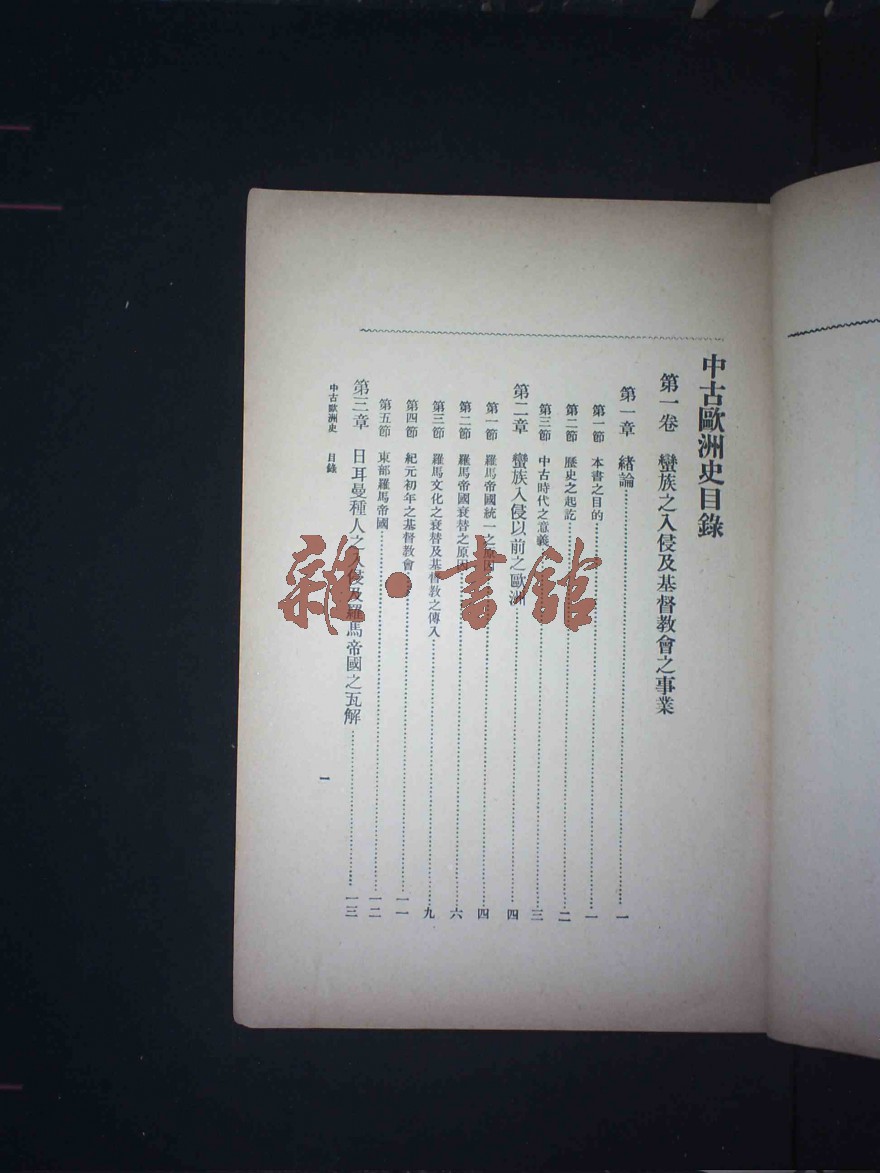 中古歐洲史目錄
第一卷 蠻族之入侵及基督教會之事業
第一章 緒論……一
第一節 本書之目的……一
第二節 歷史之起訖……二
第三節 中古時代之意義……三
第二章 蠻族入侵以前之歐洲……四
第一節 羅馬帝國統一之原因……四
第二節 羅馬帝國衰替之原因……六
第三節 羅馬文化之衰替及基督教之傳入……九
第四節 紀元初年之基督教會……一一
第五節 東部羅馬帝國……一二
第三章 日耳曼種人之入侵及羅馬帝國之瓦解……一三
中古歐洲史 目錄
一
雜·書館